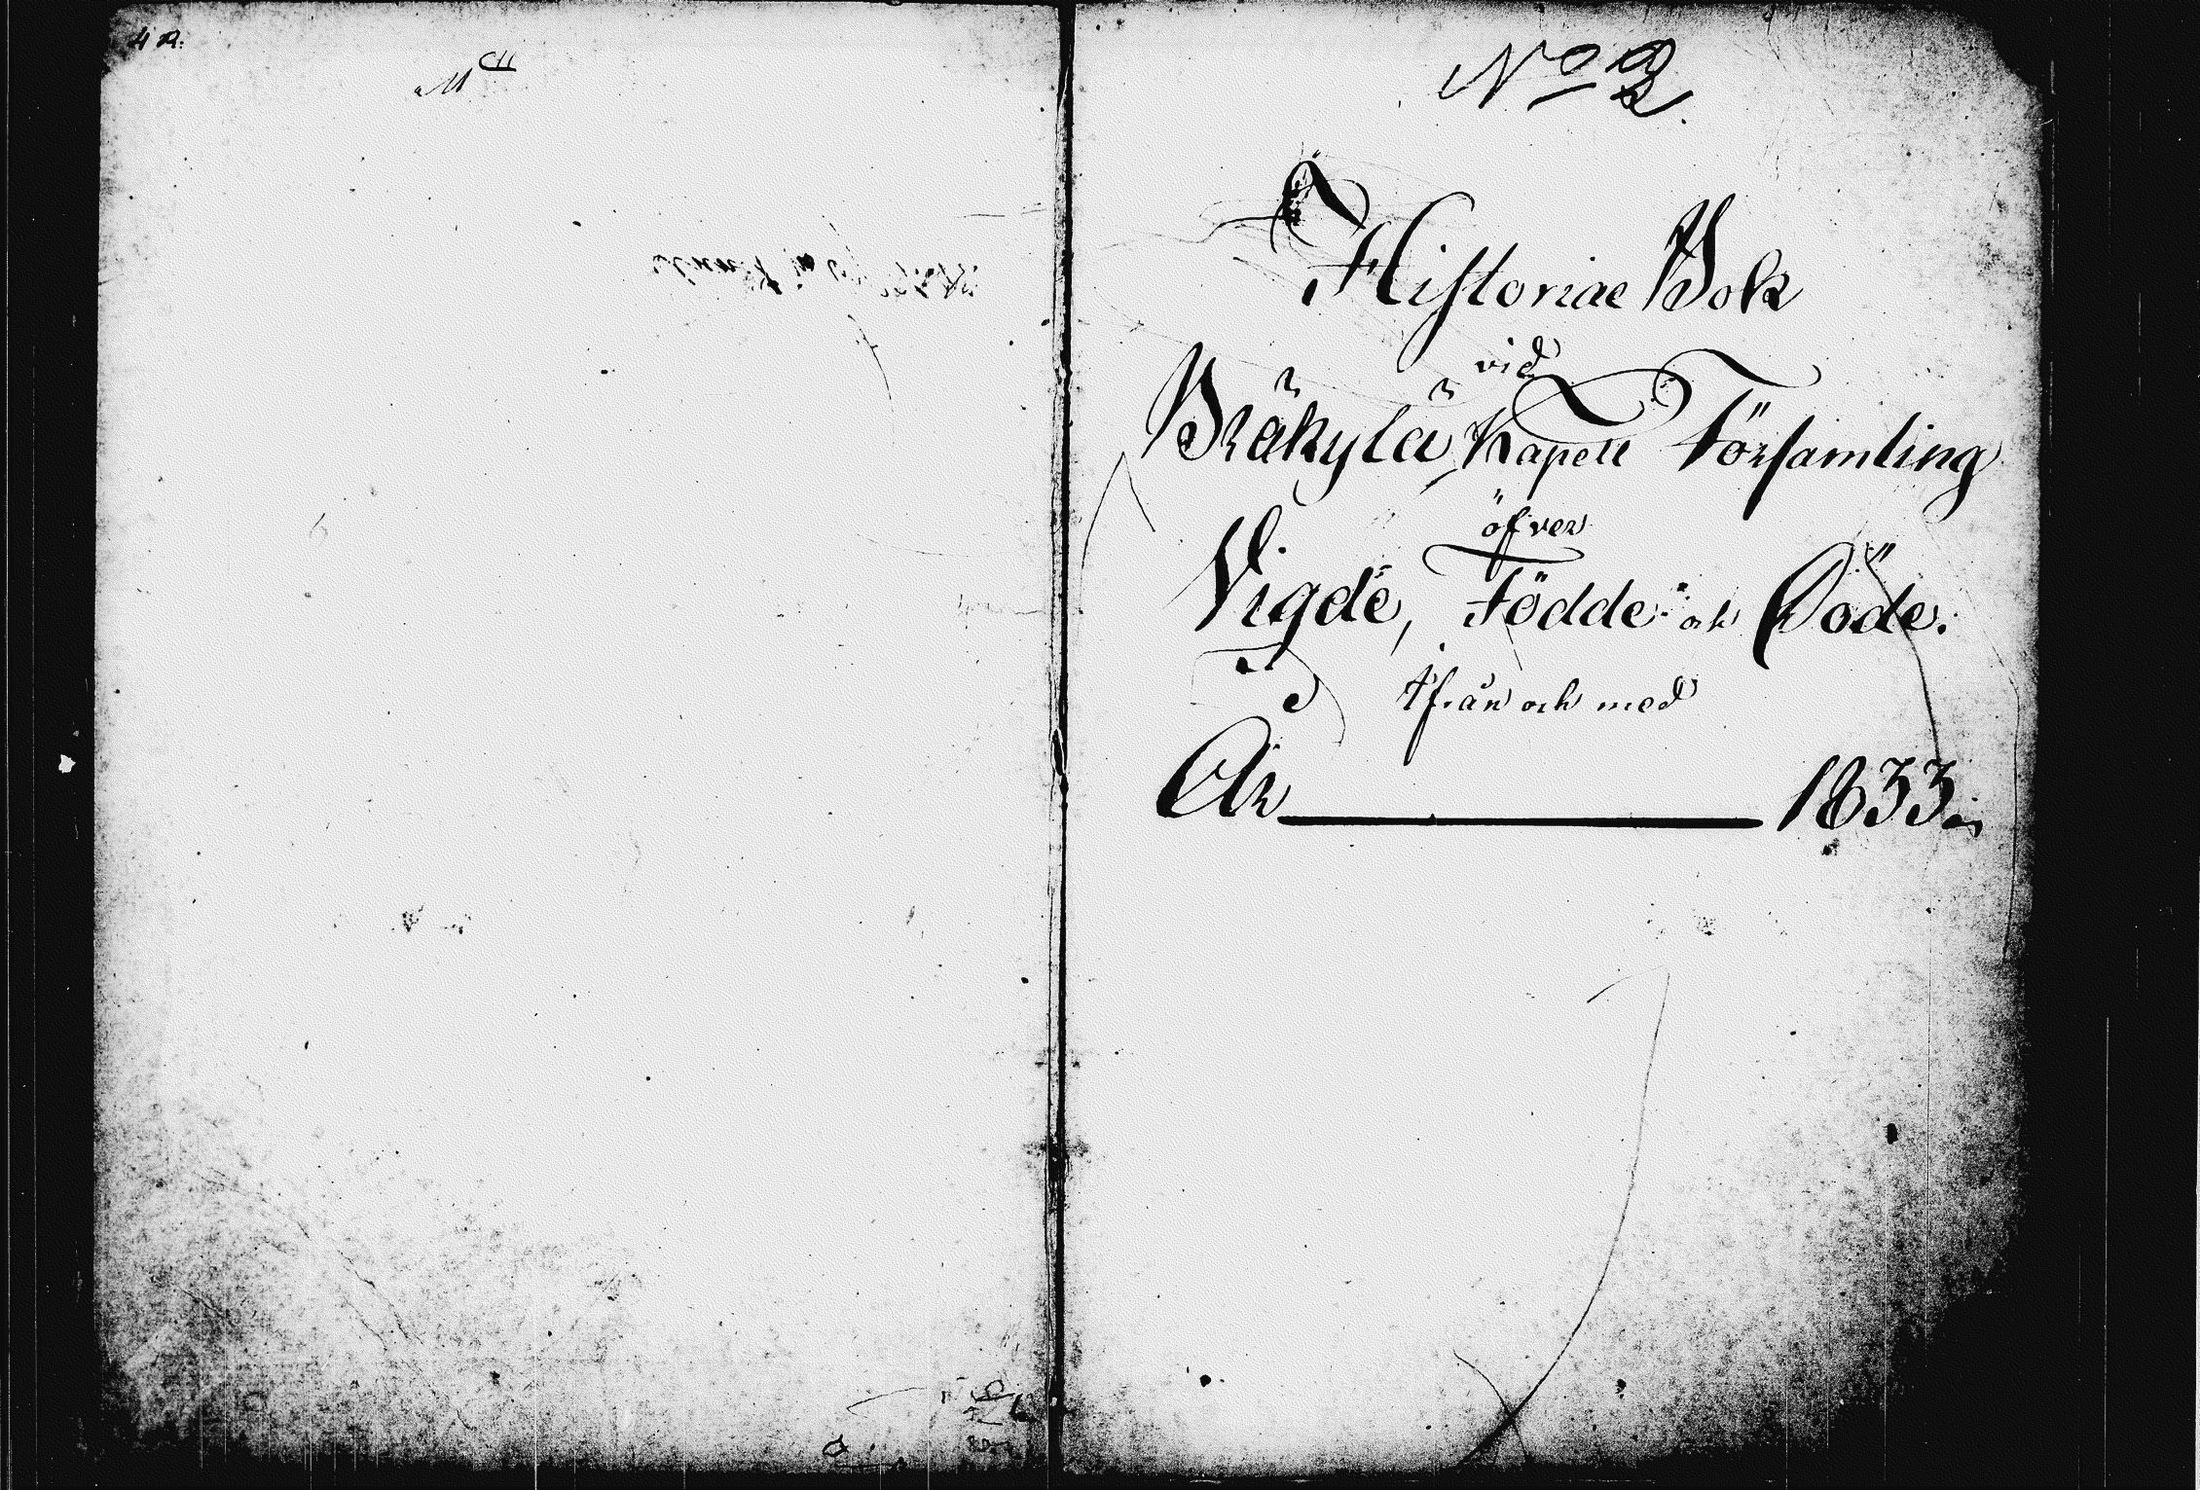 No 2.
Historiae Bok
vid
Bräkylä Kapell Församling
öfver
Vigde, Födde och Döde.
ifrån och med
År 1833.